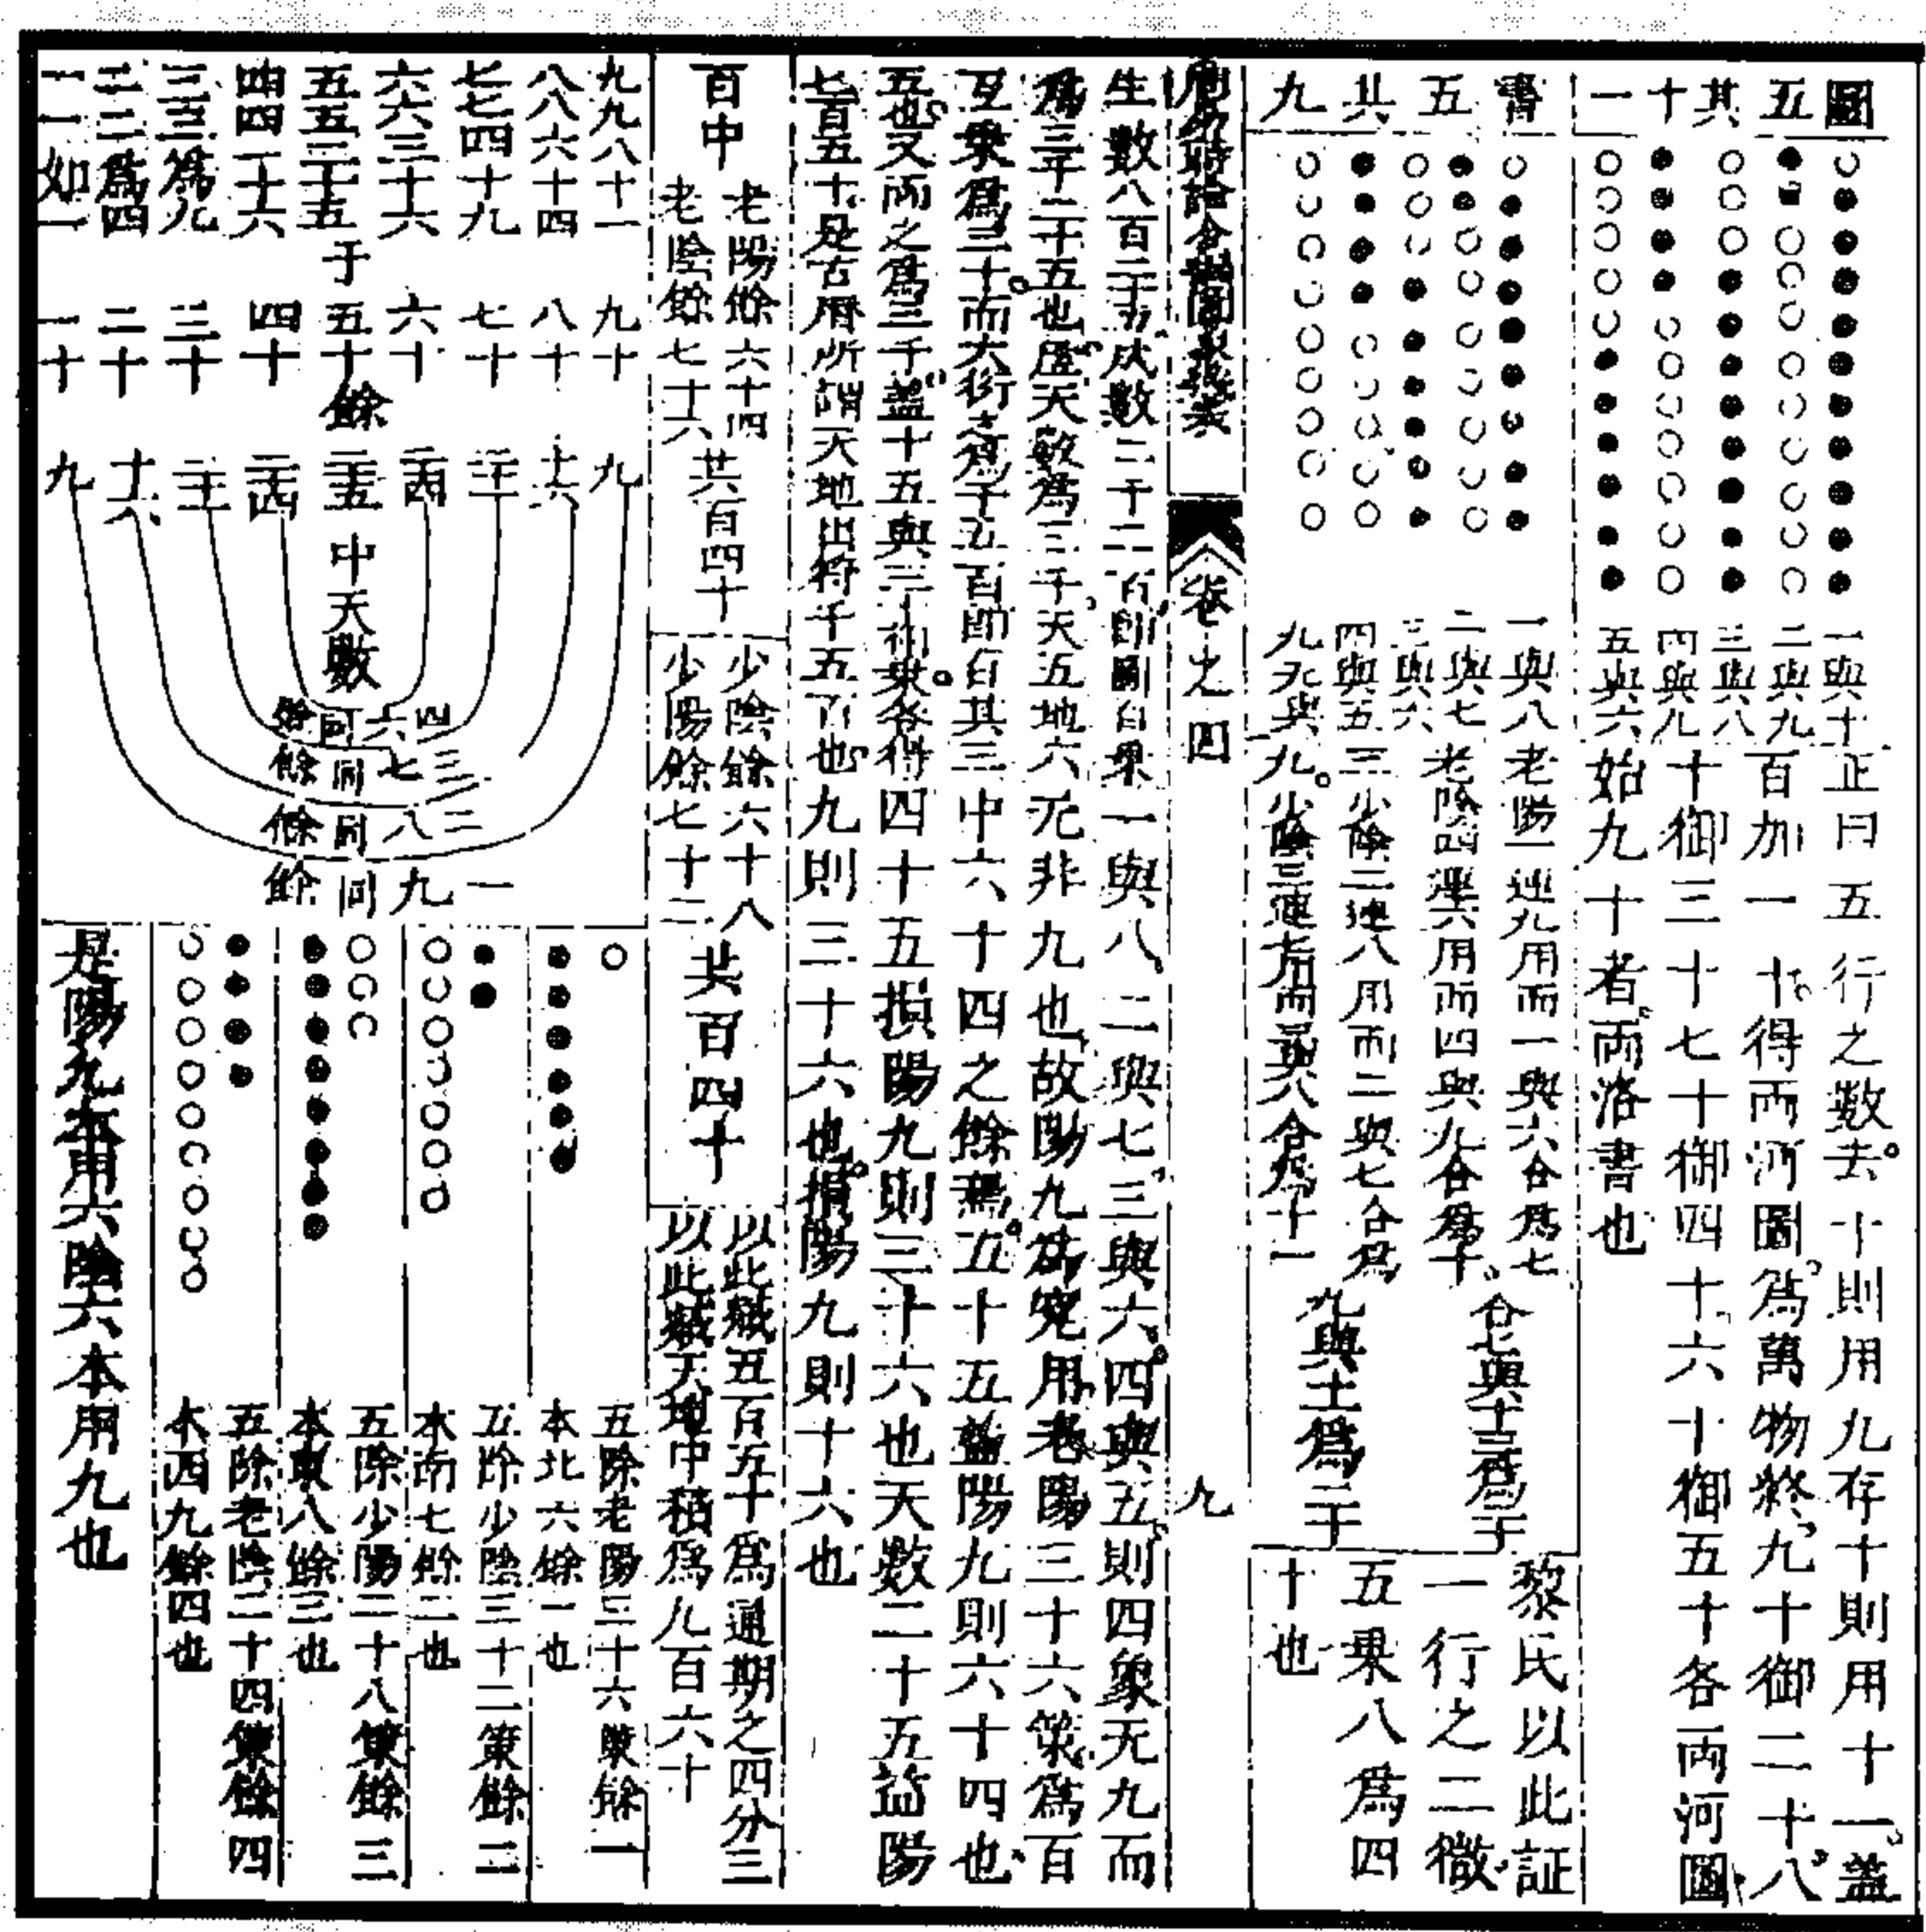 圖五其十一
一與十
二與九
三與八
四與九
五與六
正曰五行之數去十則用九存十則用十一蓋
百加一十得兩河圖為萬物終九十御二十八
十御三十七十御四十六十御五十各兩河圖
始九十者兩洛書也
書五共九
一與八
二與七
三與六
四與五
九无與
老陽一連九用而一與六合爲七
老陰四連六用而四與九合爲十
三少陰二連八用而二與七合爲
九少陰三連七用而三與八合爲十一
合七與十三爲二十
九與十一爲二十
黎氏以此証
一行之二微
五乗八爲四
十也
周易時論合編圖象幾表
卷之四
九
生數八百二十五成數二千二百即圖自乗一與八二與七三與六四與五則四象无九而
爲三千二十五也虛天數爲三千天五地六无非九也故陽九爲究用老陽三十六策爲百
互乗爲三十而大衍之爲千五百即自其三中六十四之餘爲五十五益陽九則六十四也
五也又兩之爲三千蓋十五與三十相乗各得四十五損陽九則三十六也天數二十五益陽
七百五十是古曆所謂天地出符千五百也九則三十六也損陽九則十六也
百中
老陽餘六十四
老陰餘七十六
共百四十
少陰餘六十八
少陽餘七十二
共百四十
以此減五百五十爲通期之四分三
以此減天地中積爲九百六十
九九八十一
八八六十四
七七四十九
六六三十六
五五二十五
四四一十六
三三爲九
二二爲四
一一如一
于
九十
八十
七十
六十
五十
四十
三十
二十
一十
餘
九
十六
二十一
二十四
二十五
二十四
二十一
十六
九
中天數
四六同餘
三七同餘
二八同餘
一九同餘
五除老陽三十六策餘一
本北六餘一也
五除少陰三十二策餘二
本南七餘二也
五除少陽二十八策餘三
本東八餘三也
五除老陰二十四策餘四
本西九餘四也
是陽九本用六陰六本用九也